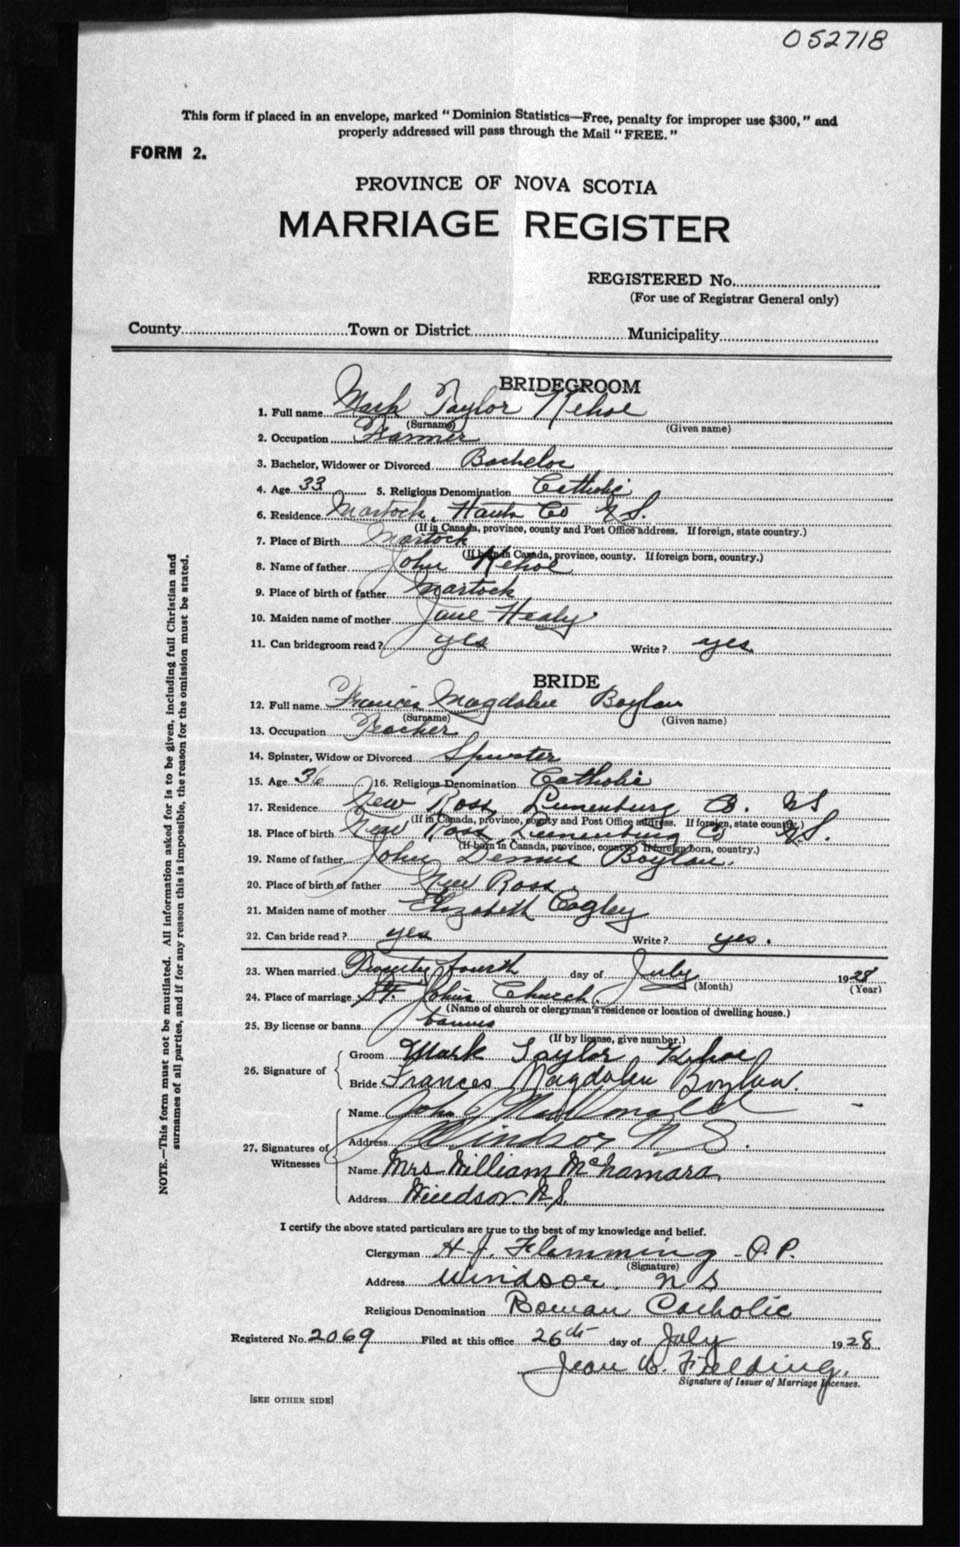 052718
This form if placed in an envelope, marked "Dominion Statistics—Free, penalty for improper use $300," and
properly addressed will pass through the Mail "FREE."
FORM 2.
PROVINCE OF NOVA SCOTIA
MARRIAGE REGISTER
REGISTERED No.
(For use of Registrar General only)
County Town or District Municipality
BRIDEGROOM
1. Full name Mark Taylor Kehoe
(Surname) (Given name)
2. Occupation Farmer
3. Bachelor, Widower or Divorced Bachelor
4. Age 33 5. Religious Denomination Catholic
6. Residence Martock, Hants Co N.S.
(If in Canada, province, county and Post Office address. If foreign, state country.)
7. Place of Birth Martock
(If born in Canada, province, county. If foreign born, country.)
8. Name of father John Kehoe
9. Place of birth of father Martock
10. Maiden name of mother Jane Healy
11. Can bridegroom read? yes Write? yes
BRIDE
12. Full name Frances Magdalen Boylan
(Surname) (Given name)
13. Occupation Teacher
14. Spinster, Widow or Divorced Spinster
15. Age 36 16. Religious Denomination Catholic
17. Residence New Ross, Lunenburg Co. NS
(If in Canada, province, county and Post Office address. If foreign, state country.)
18. Place of birth New Ross Lunenburg Co N.S.
(If born in Canada, province, county. If foreign born, country.)
19. Name of father John Dennis Boylan.
20. Place of birth of father New Ross
21. Maiden name of mother Elizabeth Cogley
22. Can bride read? yes Write? yes.
23. When married Twenty fourth day of July 1928
(Month) (Year)
24. Place of marriage St. Johns Church
(Name of church or clergyman's residence or location of dwelling house.)
25. By license or banns banns
(If by license, give number.)
26. Signature of Groom Mark Taylor Kehoe
Bride Frances Magdalen Boylan.
27. Signatures of Witnesses
Name John J MacDonald
Address Windsor N S.
Name Mrs William McNamara
Address Windsor N.S.
I certify the above stated particulars are true to the best of my knowledge and belief.
Clergyman H. J. Flemming - O.P.
(Signature)
Address Windsor, N S
Religious Denomination Roman Catholic
Registered No. 2069 Filed at this office 26th day of July 1928
Jean W. Fielding.
Signature of Issuer of Marriage Licenses.
[SEE OTHER SIDE]
NOTE.—This form must not be mutilated. All information asked for is to be given, including full Christian and
surnames of all parties, and if for any reason this is impossible, the reason for the omission must be stated.